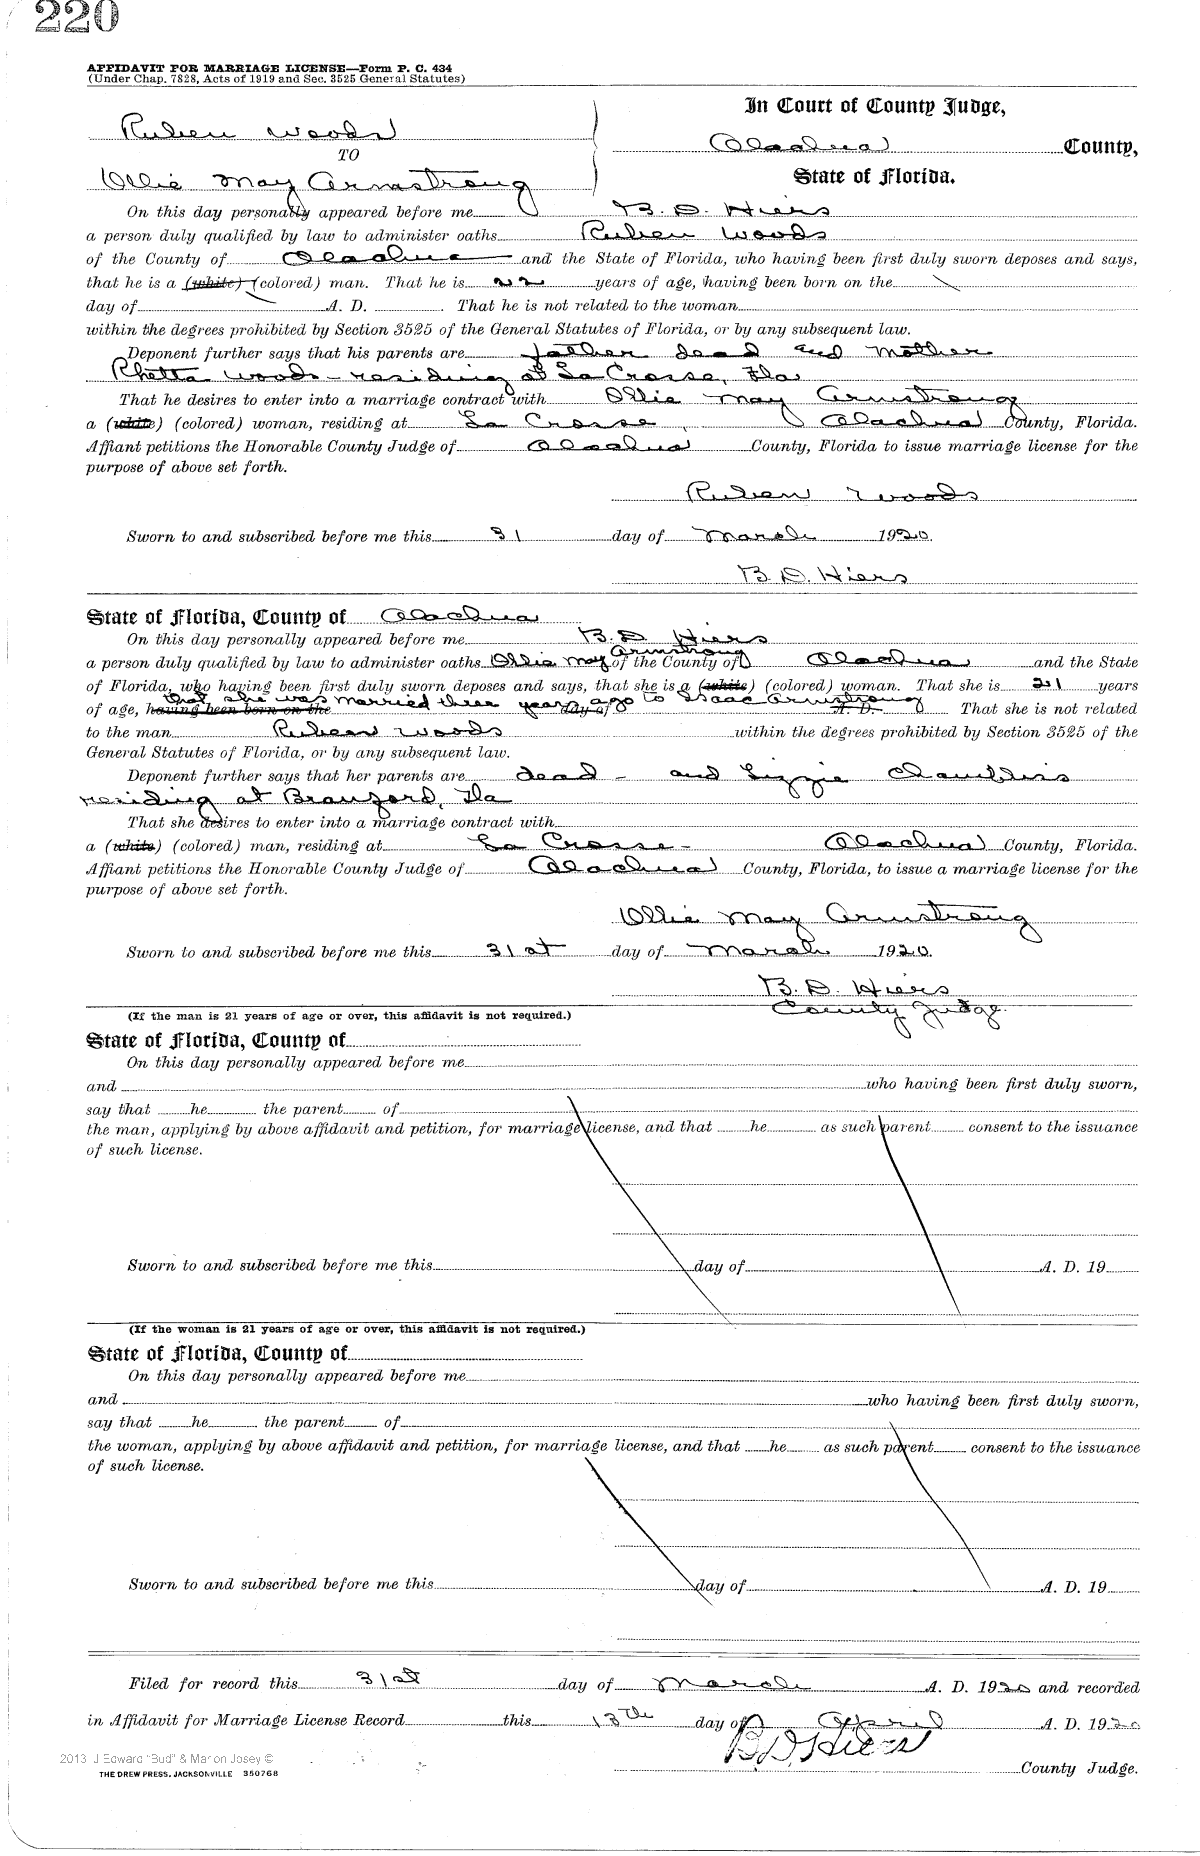 220
AFFIDAVIT FOR MARRIAGE LICENSE—Form P. C. 434
(Under Chap. 7828, Acts of 1919 and Sec. 3525 General Statutes)
In Court of County Judge,
Ruben Woods
Alachua County,
TO
State of Florida.
Ollie May Armstrong
On this day personally appeared before me B. D. Hiers
a person duly qualified by law to administer oaths Ruben Woods
of the County of Alachua and the State of Florida, who having been first duly sworn deposes and says,
that he is a (white) (colored) man. That he is 22 years of age, having been born on the
day of A. D. That he is not related to the woman
within the degrees prohibited by Section 3525 of the General Statutes of Florida, or by any subsequent law.
Deponent further says that his parents are father dead and mother
Rhetta Woods - residing at La Crosse, Fla
That he desires to enter into a marriage contract with Ollie May Armstrong
a (white) (colored) woman, residing at La Crosse, Alachua County, Florida.
Affiant petitions the Honorable County Judge of Alachua County, Florida to issue marriage license for the
purpose of above set forth.
Ruben Woods
Sworn to and subscribed before me this 31 day of March 1920.
B. D. Hiers
State of Florida, County of Alachua
On this day personally appeared before me B. D Hiers
a person duly qualified by law to administer oaths Ollie May Armstrong of the County of Alachua and the State
of Florida, who having been first duly sworn deposes and says, that she is a (white) (colored) woman. That she is 21 years
that she was married three years ago to Isaac Armstrong
of age, having been born on the day of A. D. That she is not related
to the man Ruben Woods within the degrees prohibited by Section 3525 of the
General Statutes of Florida, or by any subsequent law.
Deponent further says that her parents are dead - and Lizzie Chambliss
residing at Branford, Fla
That she desires to enter into a marriage contract with
a (white) (colored) man, residing at La Crosse - Alachua County, Florida.
Affiant petitions the Honorable County Judge of Alachua County, Florida, to issue a marriage license for the
purpose of above set forth.
Ollie May Armstrong
Sworn to and subscribed before me this 31st day of March 1920.
B. D. Hiers
County Judge.
(If the man is 21 years of age or over, this affidavit is not required.)
State of Florida, County of
On this day personally appeared before me
and who having been first duly sworn,
say that he the parent of
the man, applying by above affidavit and petition, for marriage license, and that he as such parent consent to the issuance
of such license.
Sworn to and subscribed before me this day of A. D. 19
(If the woman is 21 years of age or over, this affidavit is not required.)
State of Florida, County of
On this day personally appeared before me
and who having been first duly sworn,
say that he the parent of
the woman, applying by above affidavit and petition, for marriage license, and that he as such parent consent to the issuance
of such license.
Sworn to and subscribed before me this day of A. D. 19
Filed for record this 31st day of March A. D. 1920 and recorded
in Affidavit for Marriage License Record this 13th day of April A. D. 1920
B. D. Hiers
County Judge.
2013 J Edward "Bud" & Marion Josey ©
THE DREW PRESS, JACKSONVILLE 350768